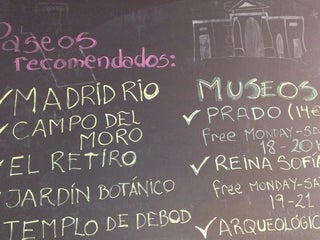 Paseos
recomendados:
MADRID RÍO
CAMPO DEL
MORO
EL RETIRO
JARDÍN BOTÁNICO
TEMPLO DE DEBOD
MUSEOS
PRADO (14€
free MONDAY-SA
18-20
REINA SOFÍA
free MONDAY-SA
19-21
ARQUEOLÓGIC